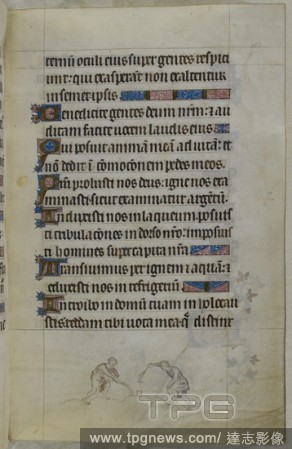 ternū oculi eius super gentes respici
unt: qui exasperāt non exaltentur
in semet ipsis.
Benedicite gentes deum nr̄m: ⁊ au
ditam facite uocem laudis eius
Qui posuit animā meā ad uitā: et
nō dedit ī cōmotionem pedes meos.
Qm̄ probasti nos deus: igne nos exa
minasti sicut examinatur argētū.
Induxisti nos in laqueum posuis
ti tribulaciones in dorso nr̄o: imposuis
ti homines super capita nr̄a
Transiuimus per ignem ⁊ aquā: ⁊
eduxisti nos in refrigeriū
Introibo in domū tuam in holocau
stis reddam tibi uota mea q̄ distinx
TPG
www.tpgnews.com/達志影像